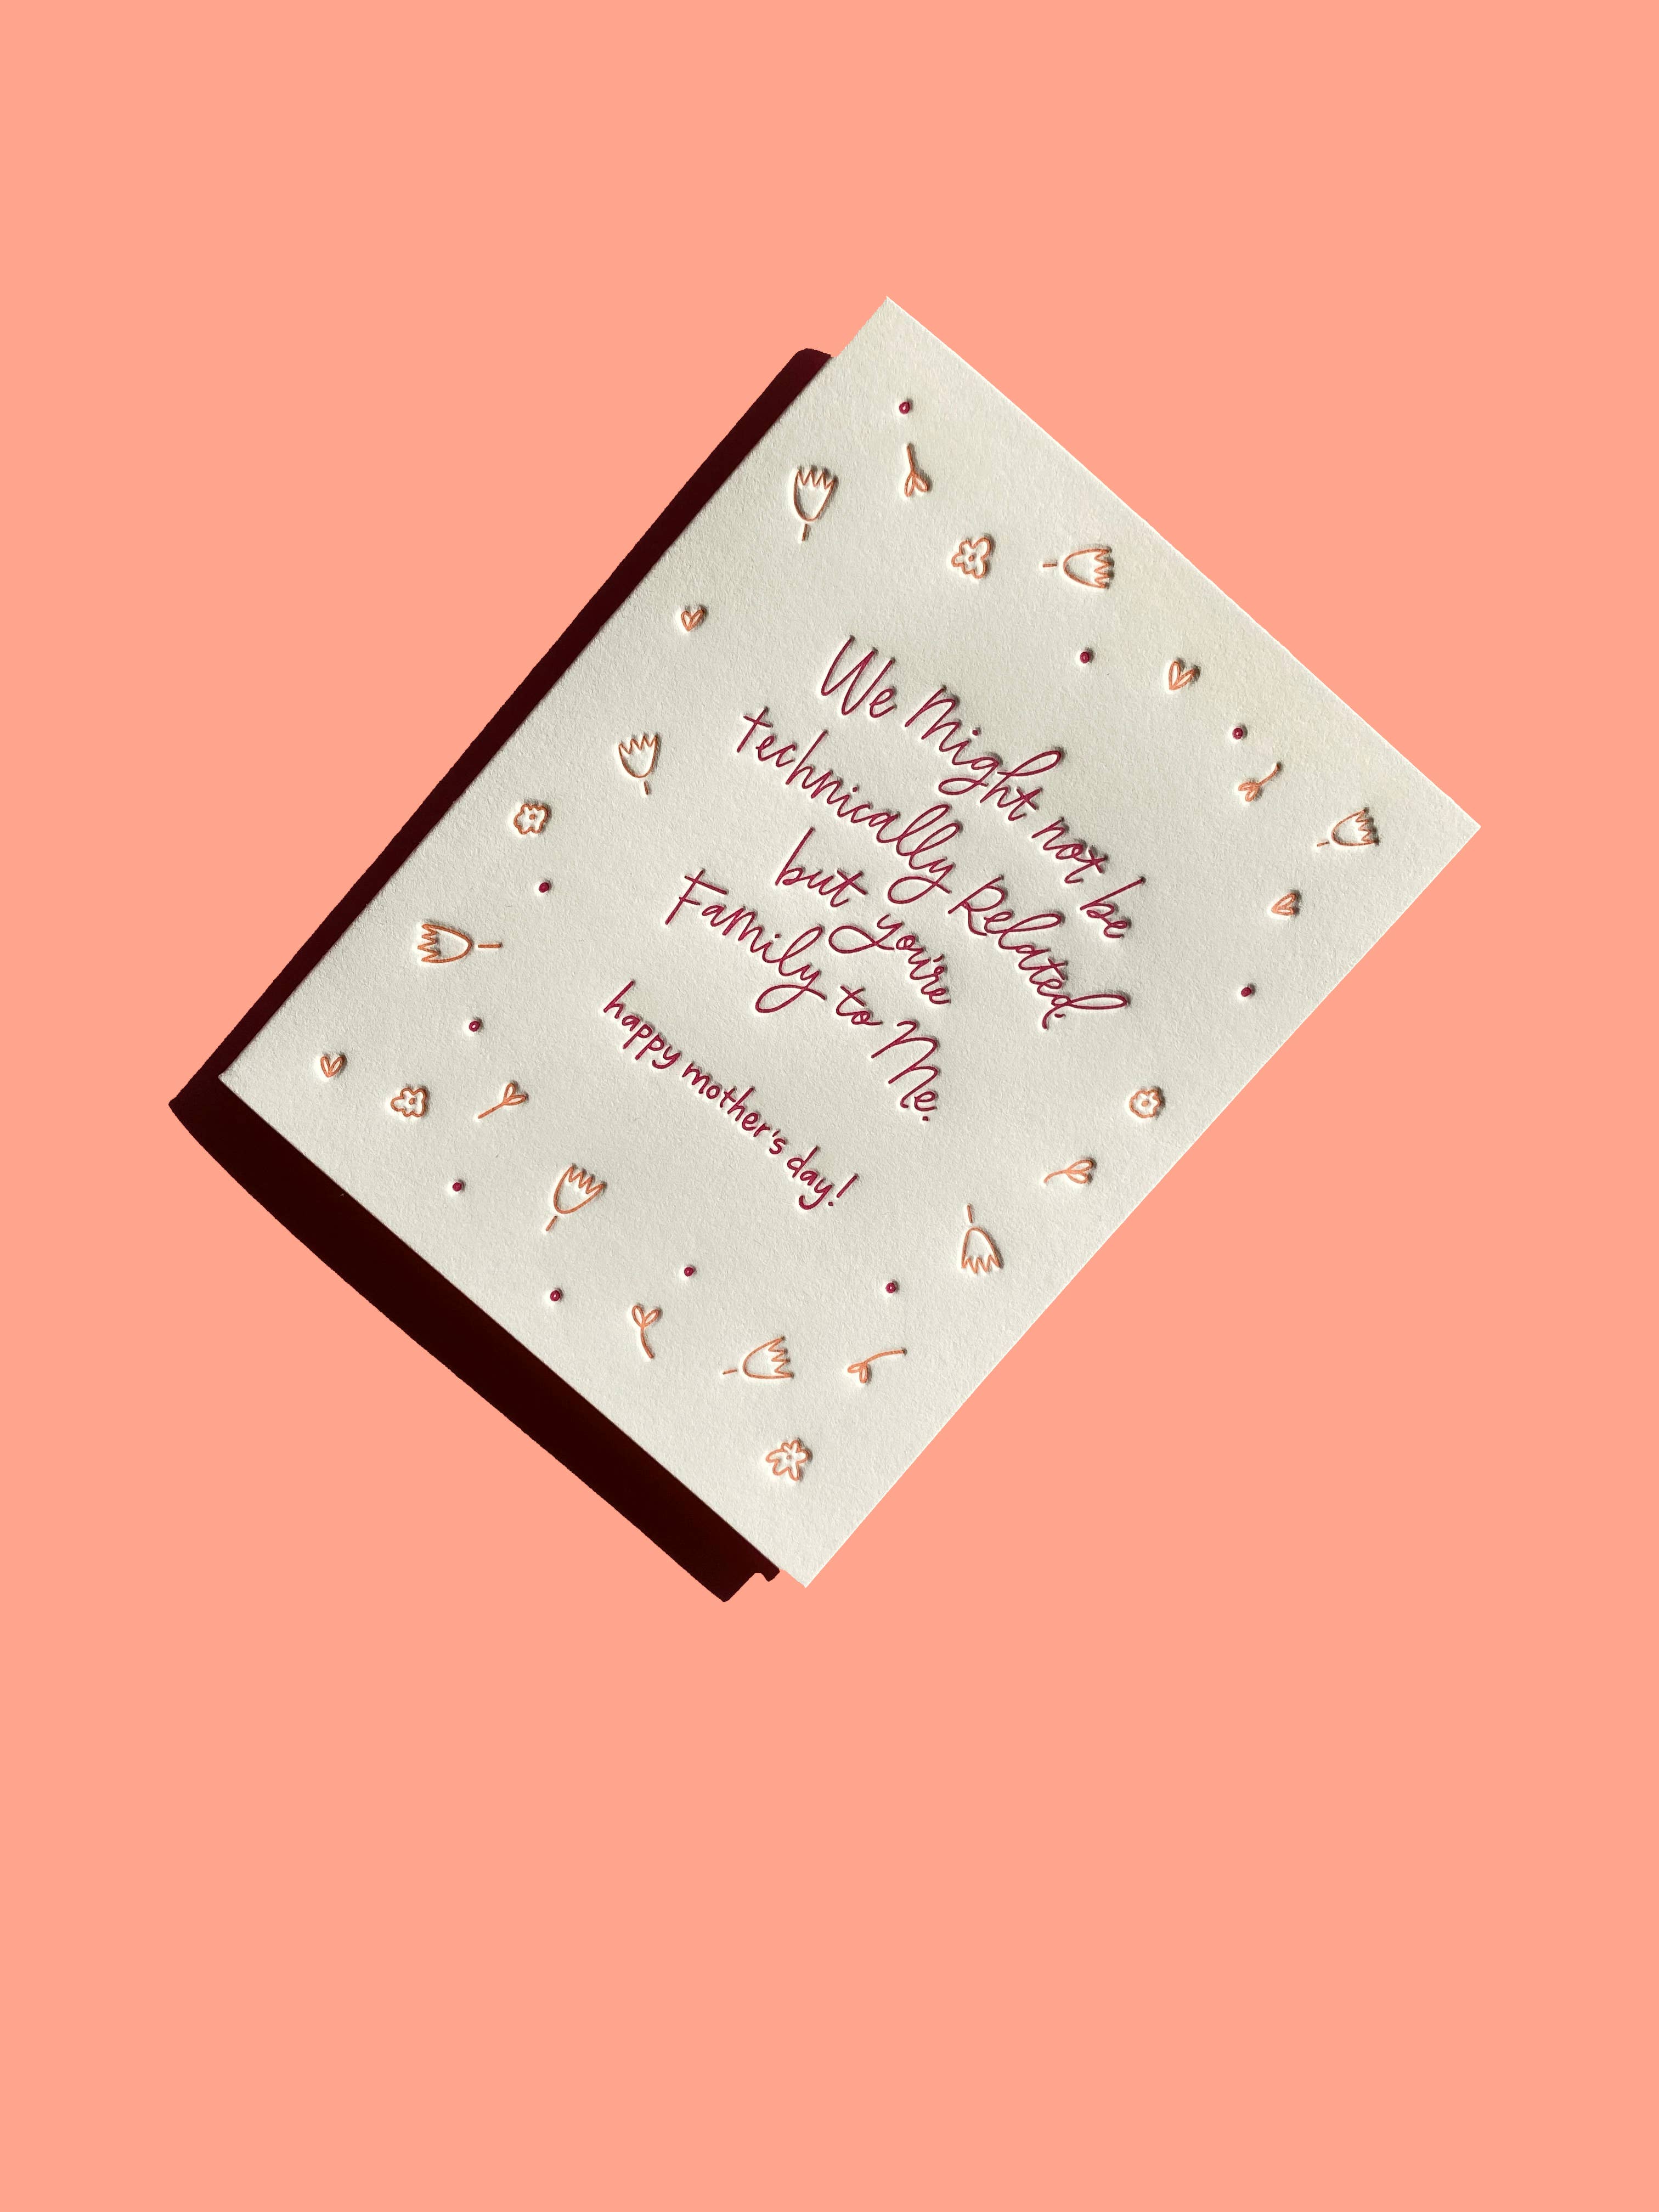 We Might not be
technically Related.
but you're
Family to Me.
happy mother's day!